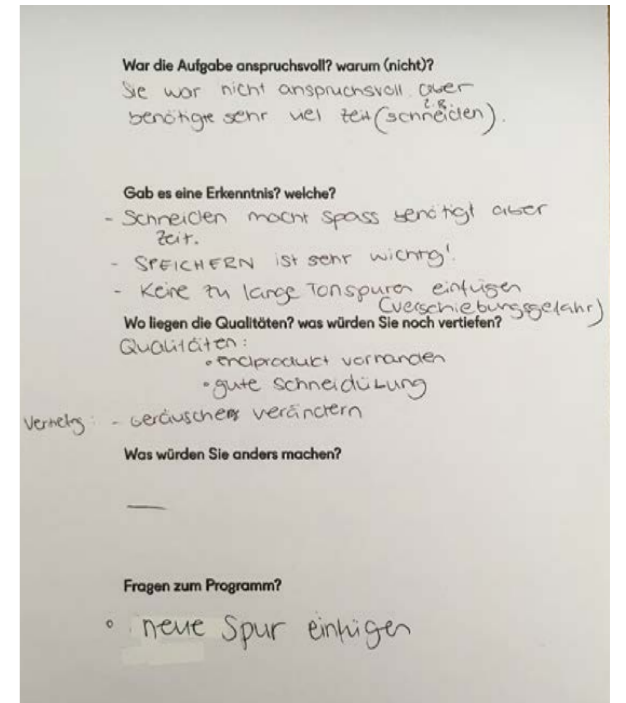 War die Aufgabe anspruchsvoll? warum (nicht)?
Sie war nicht anspruchsvoll aber
benötigte sehr viel Zeit (z.B. schneiden).
Gab es eine Erkenntnis? welche?
- Schneiden macht spass benötigt aber
Zeit.
- SPEICHERN ist sehr wichtig!
- Keine zu lange Tonspuren einfügen
(verschiebungsgefahr)
Wo liegen die Qualitäten? was würden Sie noch vertiefen?
Qualitäten:
• endprodukt vorhanden
• gute Schneidübung
- Geräusche verändern
Was würden Sie anders machen?
—
Fragen zum Programm?
° neue Spur einfügen